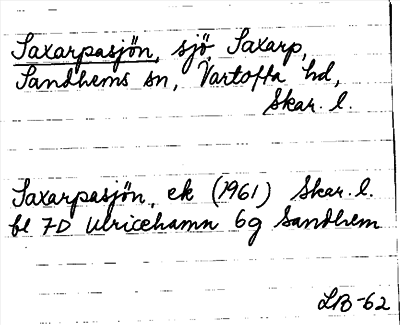 Saxarpasjön, sjö, Saxarp,
Sandhems sn, Vartofta hd,
Skar. l.
Saxarpasjön, ek (1961) Skar. l.
bl 7D Ulricehamn 6g Sandhem
LB-62